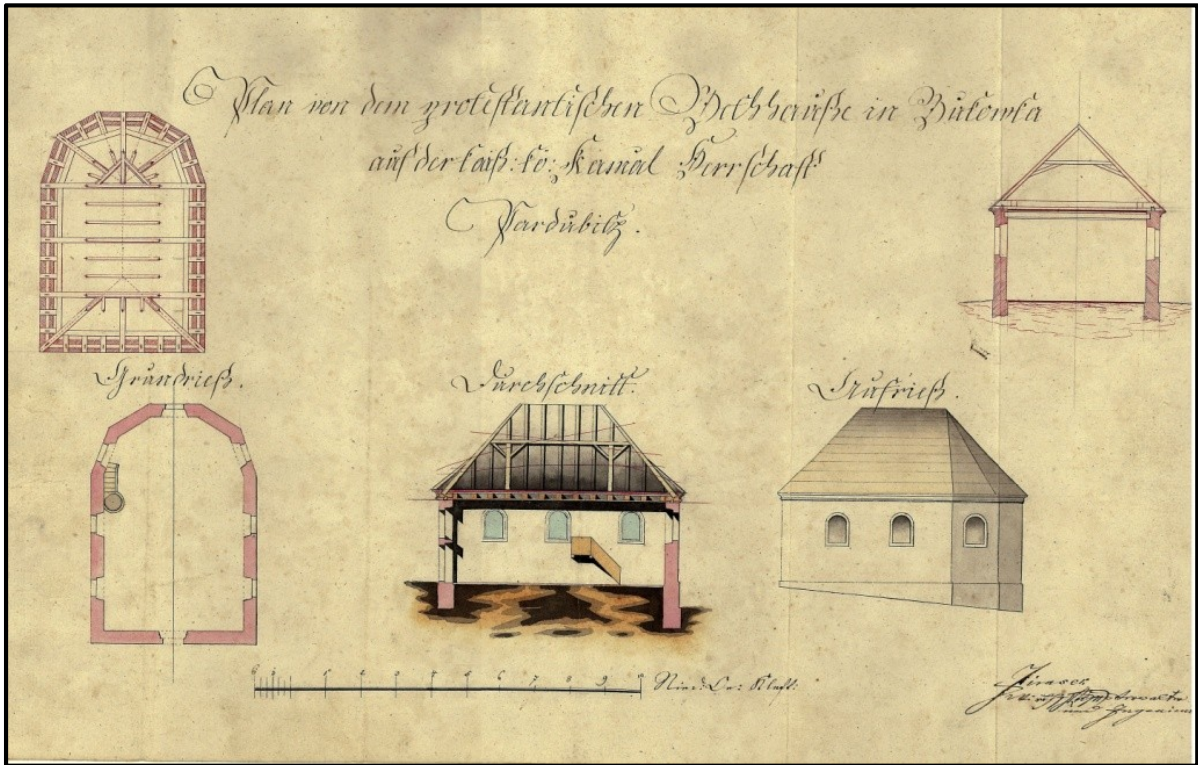 Plan von dem protestantischen Bethhauße in Bukowka
auf der kaiß: kö: Kamal Herrschaft
Pardubitz.
Grundrieß.
Durchschnitt.
Aufrieß.
1 2 3 4 5 6 7 8 9 10
Nied: Oe: Klaft:
Jirasek